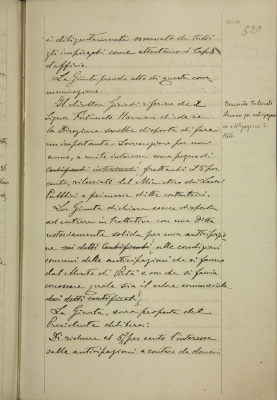 520
è diligentemente osservato da tutti
gli impiegati come attestano i Capi
d'ufficio.
La Giunta prende atto di questa comunicazione.
Il direttore Giusti riferisce che il
Signor Fortunato Hannau chiede se
la Direzione sarebbe disposta di fare
un'importante Sovvenzione per un
anno, a mite interesse sopra pegno di
certificati fruttanti il 5 per
cento, rilasciati dal Ministero dei Lavori
Pubblici a primarie ditte costruttori.
La Giunta dichiara essere disposta
ad entrare in trattative con una Ditta
notoriamente solida per una anticipazione
sui detti certificati alle condizioni
comuni delle anticipazioni che si fanno
dal Monte di Pietà e con che si faccia
conoscere quale sia il valore commerciale
dei detti certificati.
La Giunta, sopra proposta del
Presidente delibera:
Di ridurre al 5 per cento l'interesse
sulle anticipazioni a contare da domani
Domanda Fortunato
Hannau per anticipazione